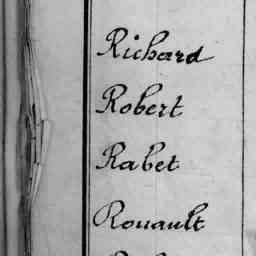 Richard
Robert
Rabet
Rouault